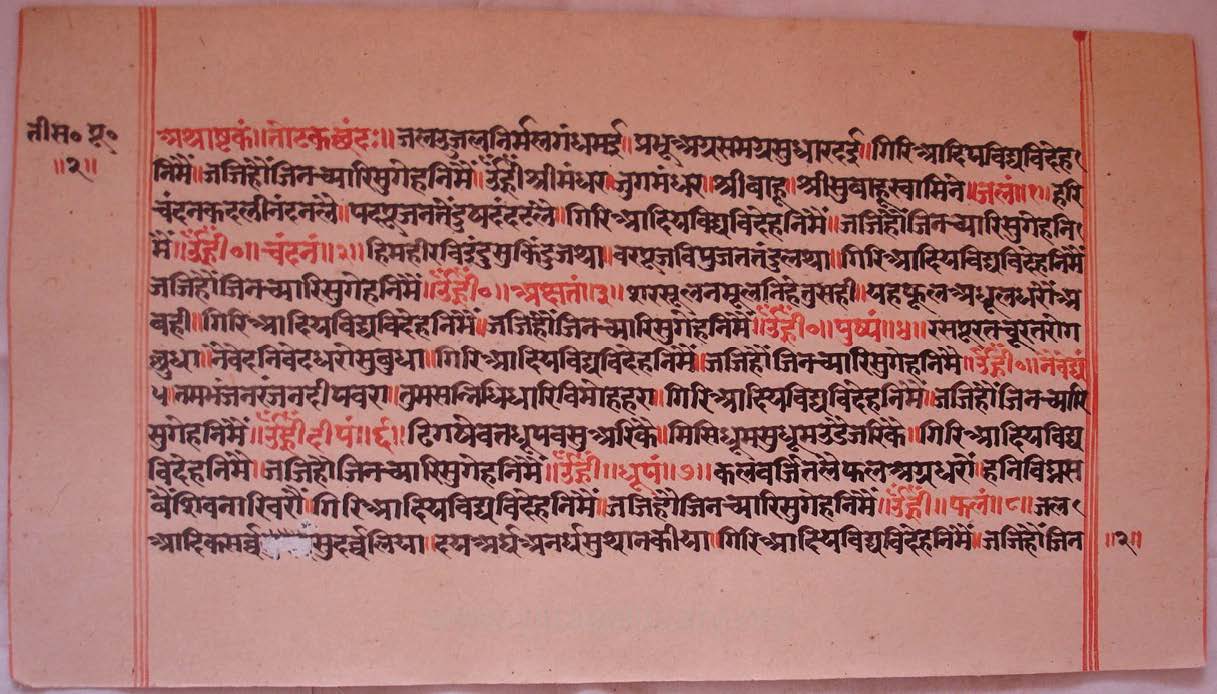 तीस॰ पू॰
॥२॥
अथाष्टकं॥तोटकछंदः॥जलउजलनिर्मलगंधमई॥प्रभूअग्रसमग्रसुधारदई॥गिरिआदियविद्यविदेह
निमैं॥जजिहौंजिनच्यारिसुगेहनिमैं॥उँह्रीं श्रीमंधर॥जुगमंधर॥श्रीबाहू॥श्रीसुबाहूस्वामिने॥जलं॥१॥हरि
चंदनकदलीनंदनलै॥पदपूजनतैंदुषदंददलै॥गिरिआदियविद्यविदेहनिमैं॥जजिहौंजिनच्यारिसुगेहनि
मैं॥उँह्रीं॰॥चंदनं॥२॥हिमहीरविइंदुमुकिंदुजथा॥वरपूजविपुजनतंदुलथा॥गिरिआदियविद्यविदेहनिमैं
जजिहौंजिनच्यारिसुगेहनिमैं॥उँह्रीं॰॥अक्षतां॥३॥शरसूलनमूलनिहेतुसही॥यहफूलअधूलधरौंअ
बही॥गिरिआदियविद्यविदेहनिमैं॥जजिहौंजिनच्यारिसुगेहनिमैं॥उँह्रीं॰॥पुष्पं॥४॥रसपूरतचूरतरोग
क्षुधा॥नैवेदनिवेदधरोसुबुधा॥गिरिआदियविद्यविदेहनिमैं॥जजिहौंजिनच्यारिसुगेहनिमैं॥उँह्रीं॰॥नैवेद्यं
५॥तमभंजनरंजनदीपवरा॥तुमसन्निधिधारिविमोहहरा॥गिरिआदियविद्यविदेहनिमैं॥जजिहौंजिनच्यारि
सुगेहनिमैं॥उँह्रीं दीपं॥६॥दिगषेवतधूपवसुअरिके॥मिसिधूमसुधूमउडेजरिके॥गिरिआदियविद्य
विदेहनिमैं॥जजिहौंजिनच्यारिसुगेहनिमैं॥उँह्रीं॥धूपं॥७॥कलवर्जितलैफलअग्रधरौं॥हनिविघ्नस
बैशिवनारिवरौं॥गिरिआदियविद्यविदेहनिमैं॥जजिहौंजिनच्यारिसुगेहनिमैं॥उँह्रीं॥फलं॥८॥जल
आदिकसर्व्व सुदर्व्वलिया॥दयअर्घअनर्घसुथानकीया॥गिरिआदियविद्यविदेहनिमैं॥जजिहौंजिन
॥२॥